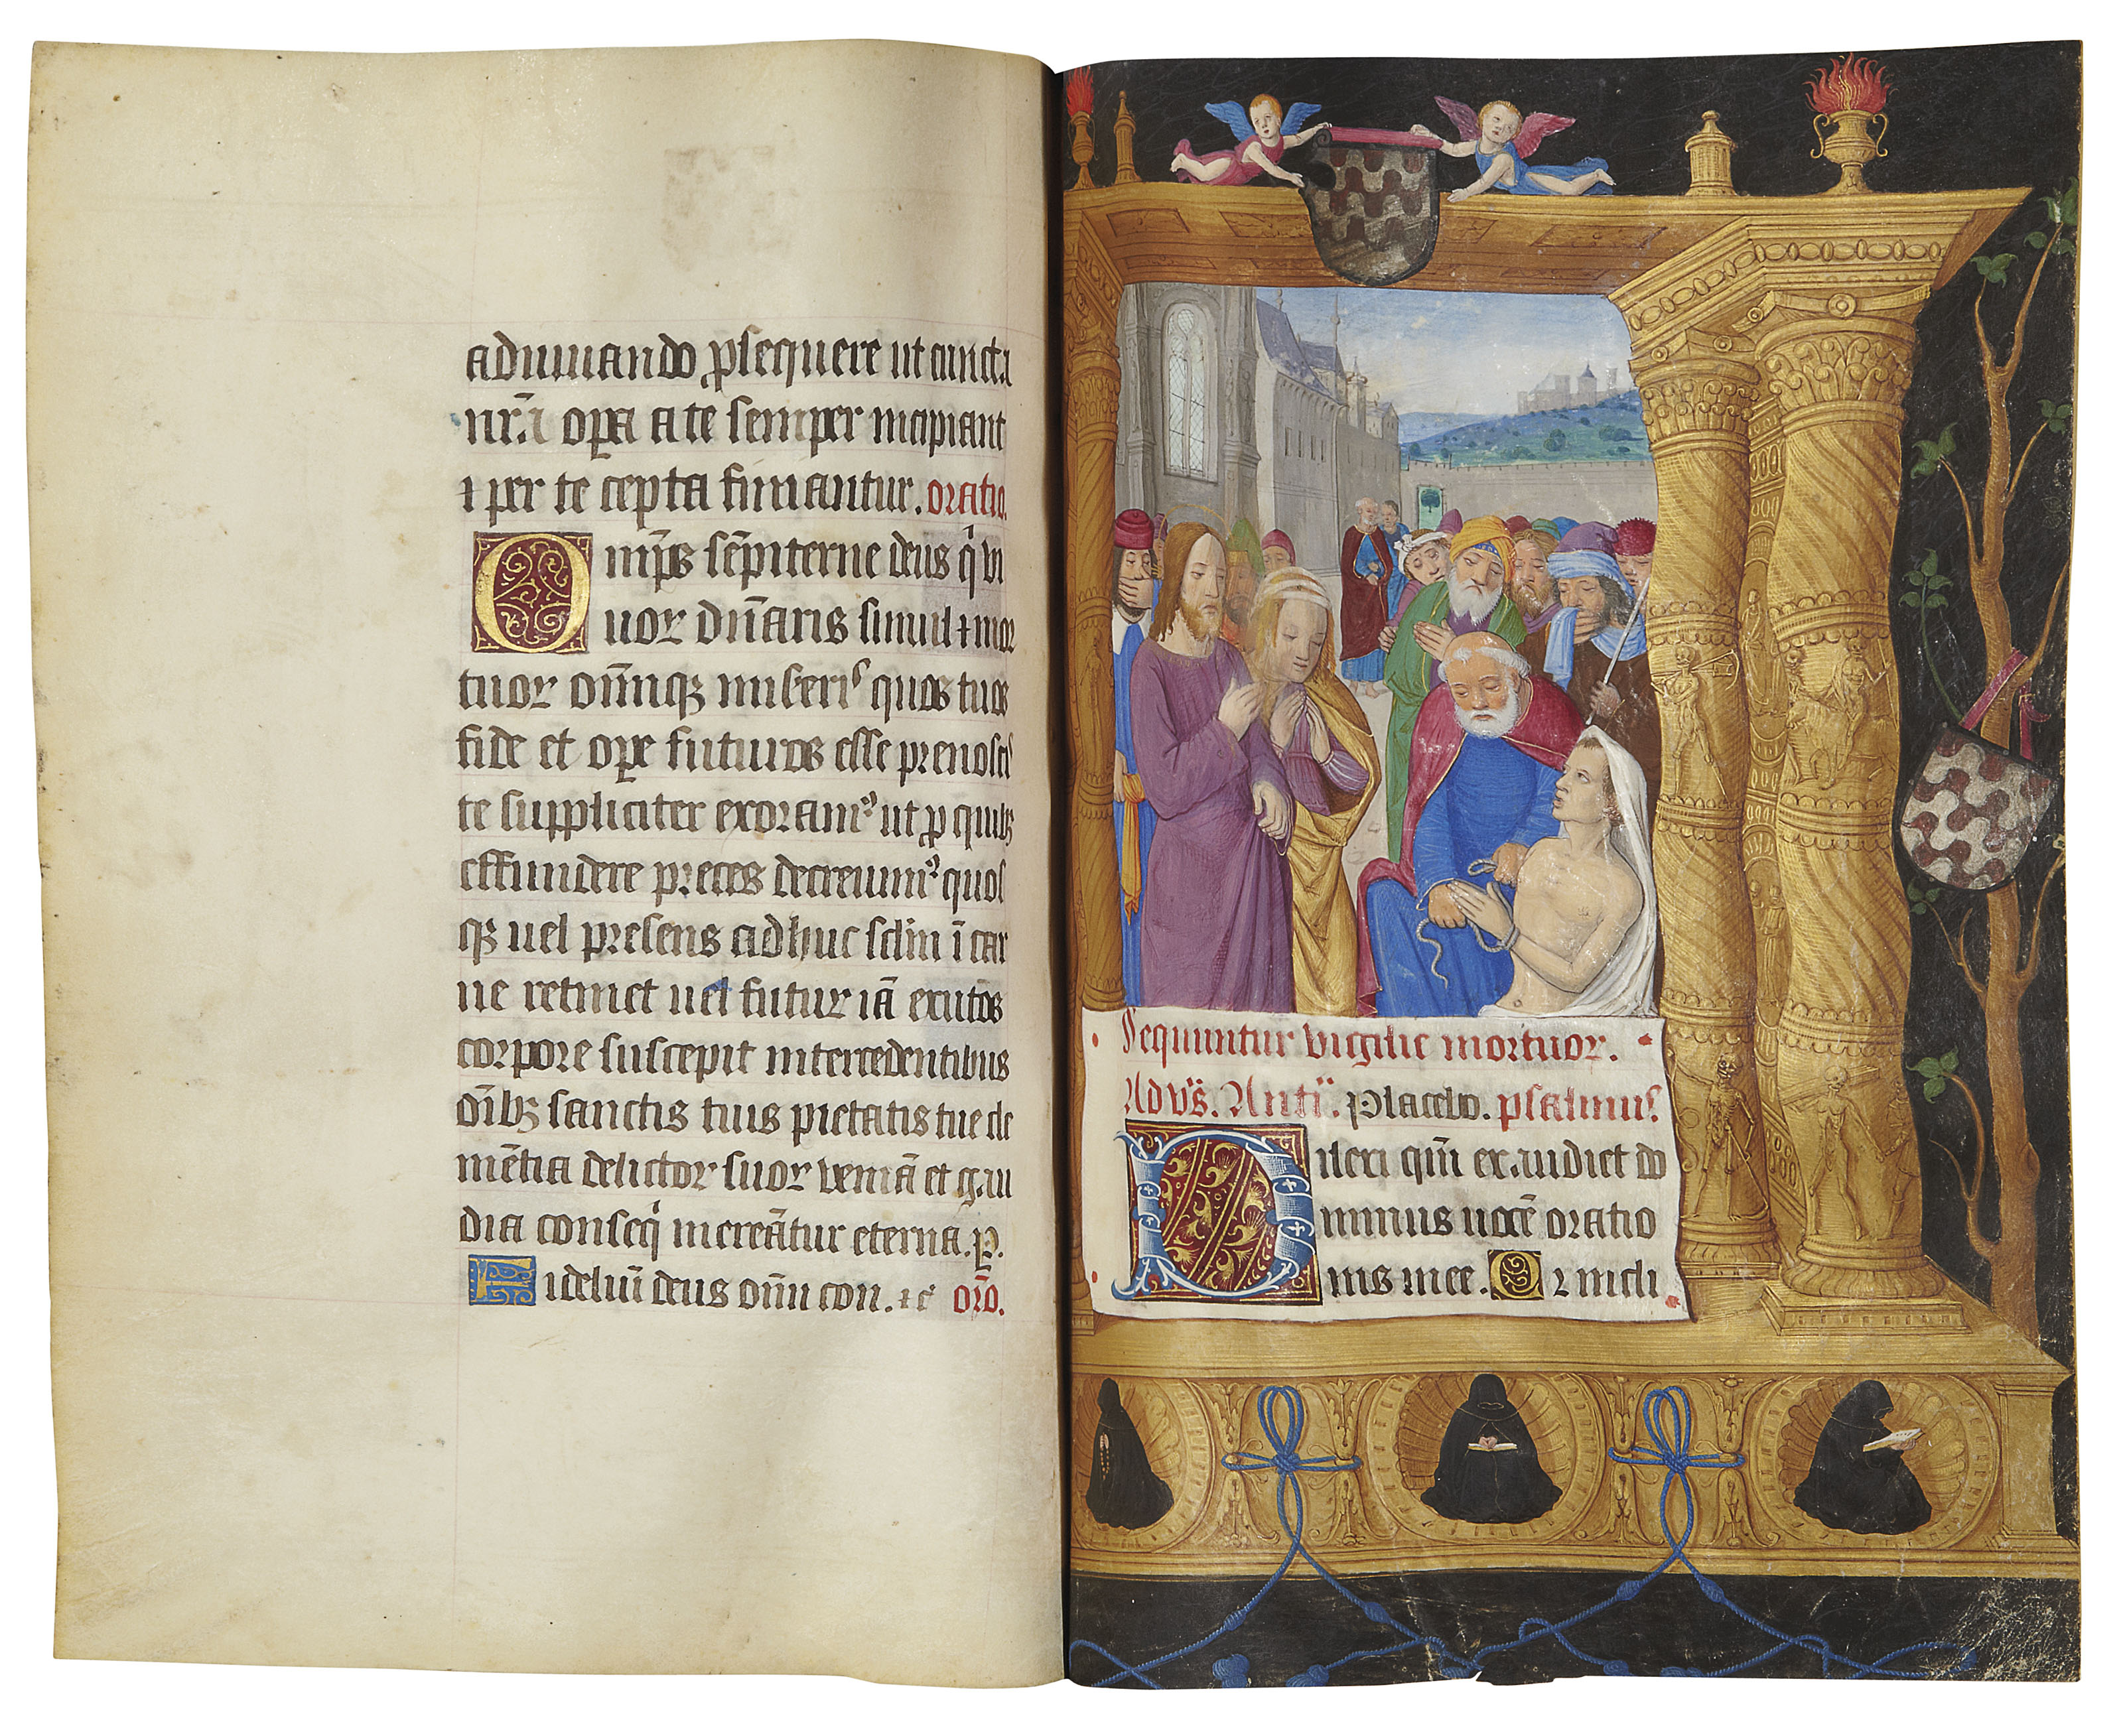 adiuuando p̱sequere ut cuncta
nr̃a op̱a a te semper incipiant
⁊ per te cepta finiantur. oratio.
Omp̄s sēpiterne deus q̇ vi
uoꝝ dn̄aris simul ⁊ moꝛ
tuoꝝ oīmq̷ miseris quos tuos
fide et op̱e futuros esse prenoscis
te suppliciter exoram⁹ ut ꝓ quibꝫ
effundere preces decreuim⁹ quos
qꝫ uel presens adhuc sclm̄ ī car
ne retinet uel futuꝝ iā exutos
corpore suscepit intercedentibus
oībꝫ sanctis tuis pietatis tue cle
mētia delictoꝝ suoꝝ veniā et gau
dia conseq̇ mereātur eterna. P.
Fideliū deus om̄i con. ⁊ c̄ or̄o.
Sequuntur vigilie mortuoꝝ.
Ad vs̄. Antī. Placebo. psalmus.
Dilexi qm̄ exaudiet do
minus uocē oratio
nis mee. Q2 incli